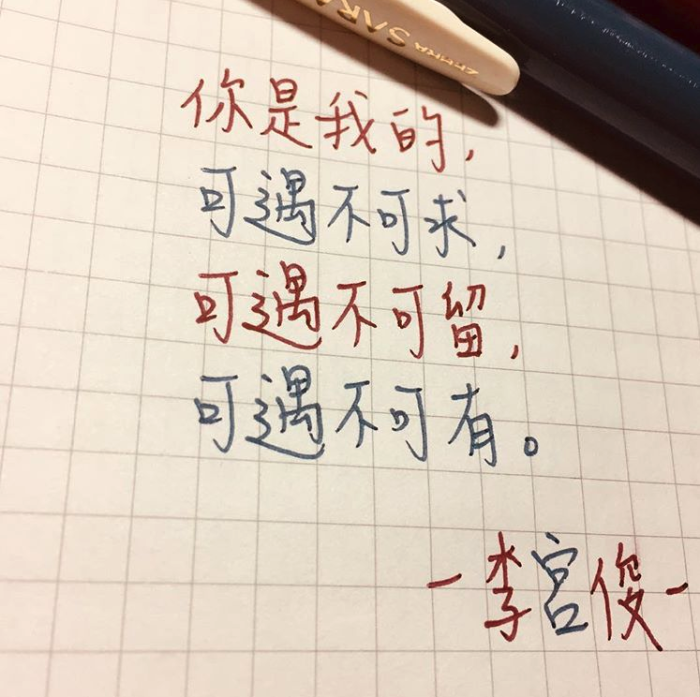 SARA
你是我的,
可遇不可求,
可遇不可留,
可遇不可有。
-李宮俊-